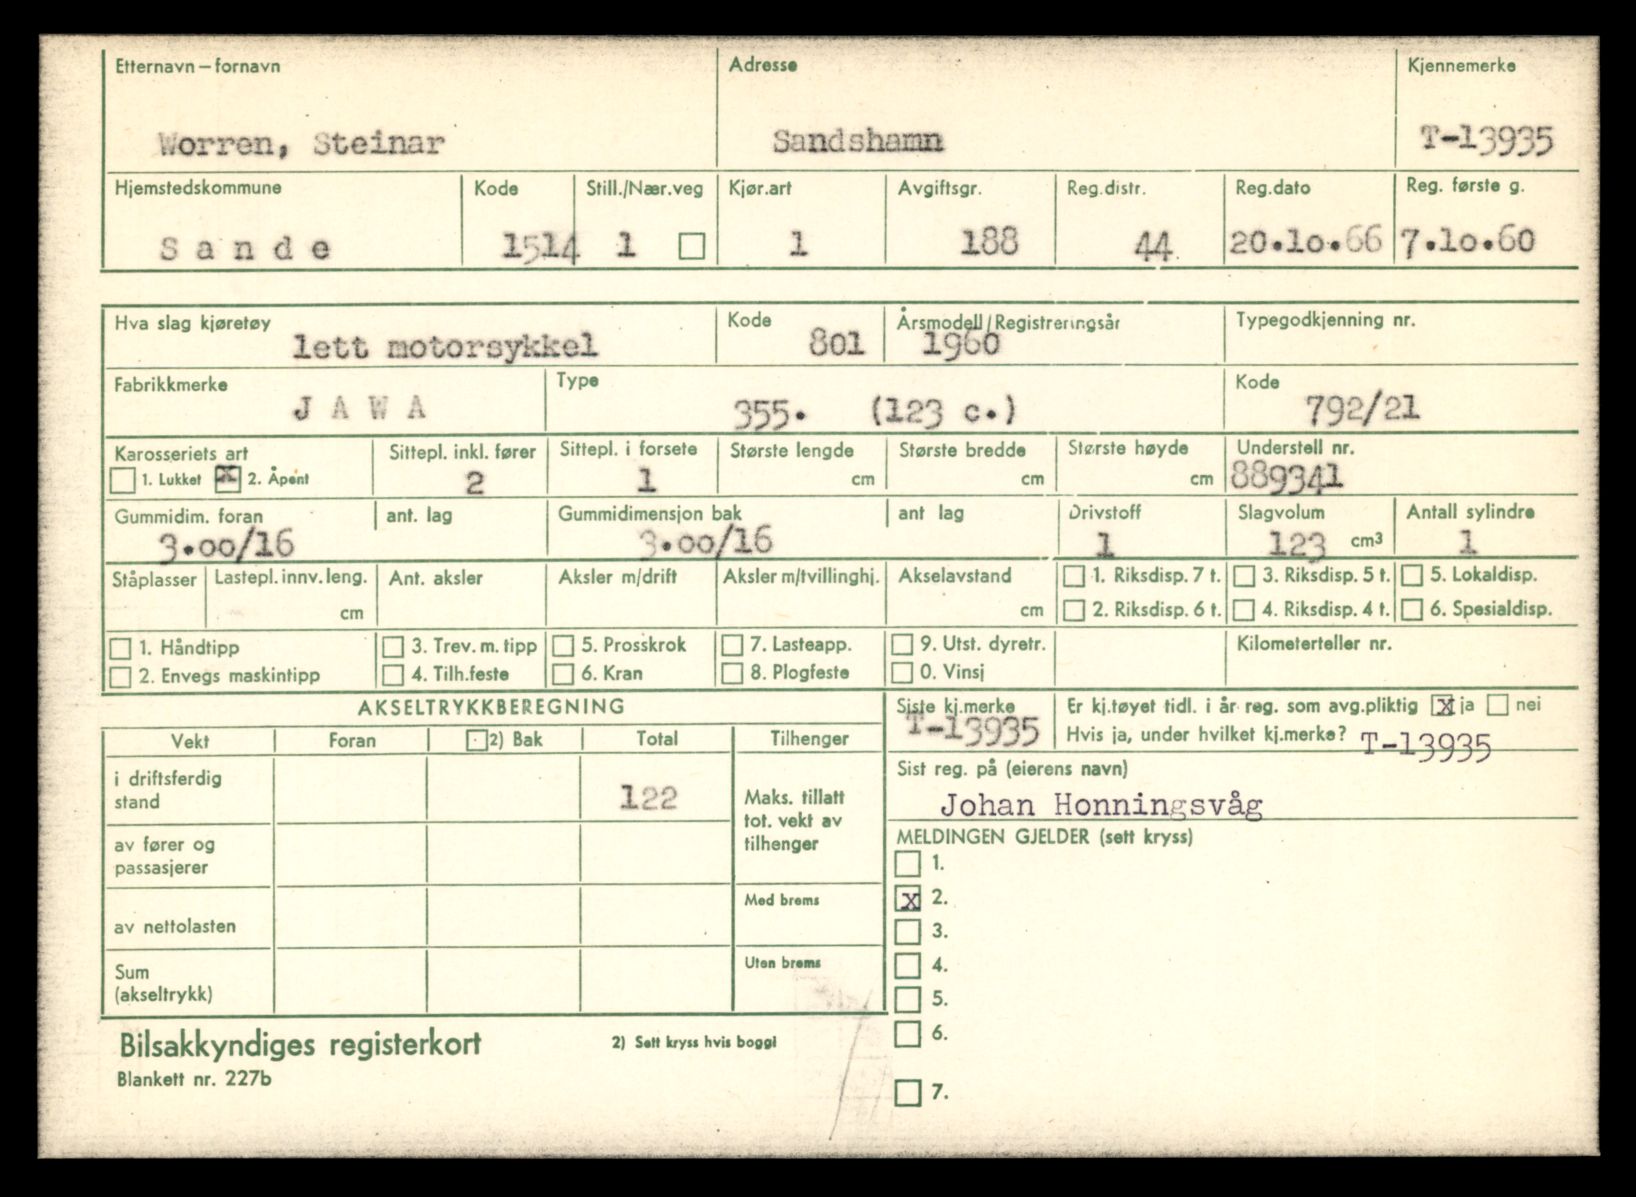 Etternavn – fornavn Adresse Kjennemerke
Worren, Steinar Sandshamn T-13935
Hjemstedskommune Kode Still./Nær.veg Kjør.art Avgiftsgr. Reg.distr. Reg.dato Reg. første g.
S a n d e 1514 1 1 188 44 20.10.66 7.10.60
Hva slag kjøretøy Kode Årsmodell/Registreringsår Typegodkjenning nr.
lett motorsykkel 801 1960
Fabrikkmerke Type Kode
J A W A 355. (123 c.) 792/21
Karosseriets art Sittepl. inkl. fører Sittepl. i forsete Største lengde Største bredde Største høyde Understell nr.
1. Lukket X 2. Åpent 2 1 cm cm cm 889341
Gummidim. foran ant. lag Gummidimensjon bak ant lag Drivstoff Slagvolum Antall sylindre
3.00/16 3.00/16 1 123 cm³ 1
Ståplasser Lastepl. innv. leng. Ant. aksler Aksler m/drift Aksler m/tvillinghj. Akselavstand 1. Riksdisp. 7 t. 3. Riksdisp. 5 t. 5. Lokaldisp.
cm cm 2. Riksdisp. 6 t. 4. Riksdisp. 4 t. 6. Spesialdisp.
1. Håndtipp 3. Trev. m. tipp 5. Prosskrok 7. Lasteapp. 9. Utst. dyretr. Kilometerteller nr.
2. Envegs maskintipp 4. Tilh.feste 6. Kran 8. Plogfeste 0. Vinsj
AKSELTRYKKBEREGNING
Vekt Foran 2) Bak Total Tilhenger
i driftsferdig
stand 122
av fører og
passasjerer
av nettolasten
Sum
(akseltrykk)
Maks. tillatt
tot. vekt av
tilhenger
Med brems
Uten brems
Siste kj.merke Er kj.tøyet tidl. i år reg. som avg.pliktig X ja nei
T-13935 Hvis ja, under hvilket kj.merke? T-13935
Sist reg. på (eierens navn)
Johan Honningsvåg
MELDINGEN GJELDER (sett kryss)
1.
X 2.
3.
4.
5.
6.
7.
Bilsakkyndiges registerkort 2) Sett kryss hvis boggi
Blankett nr. 227b